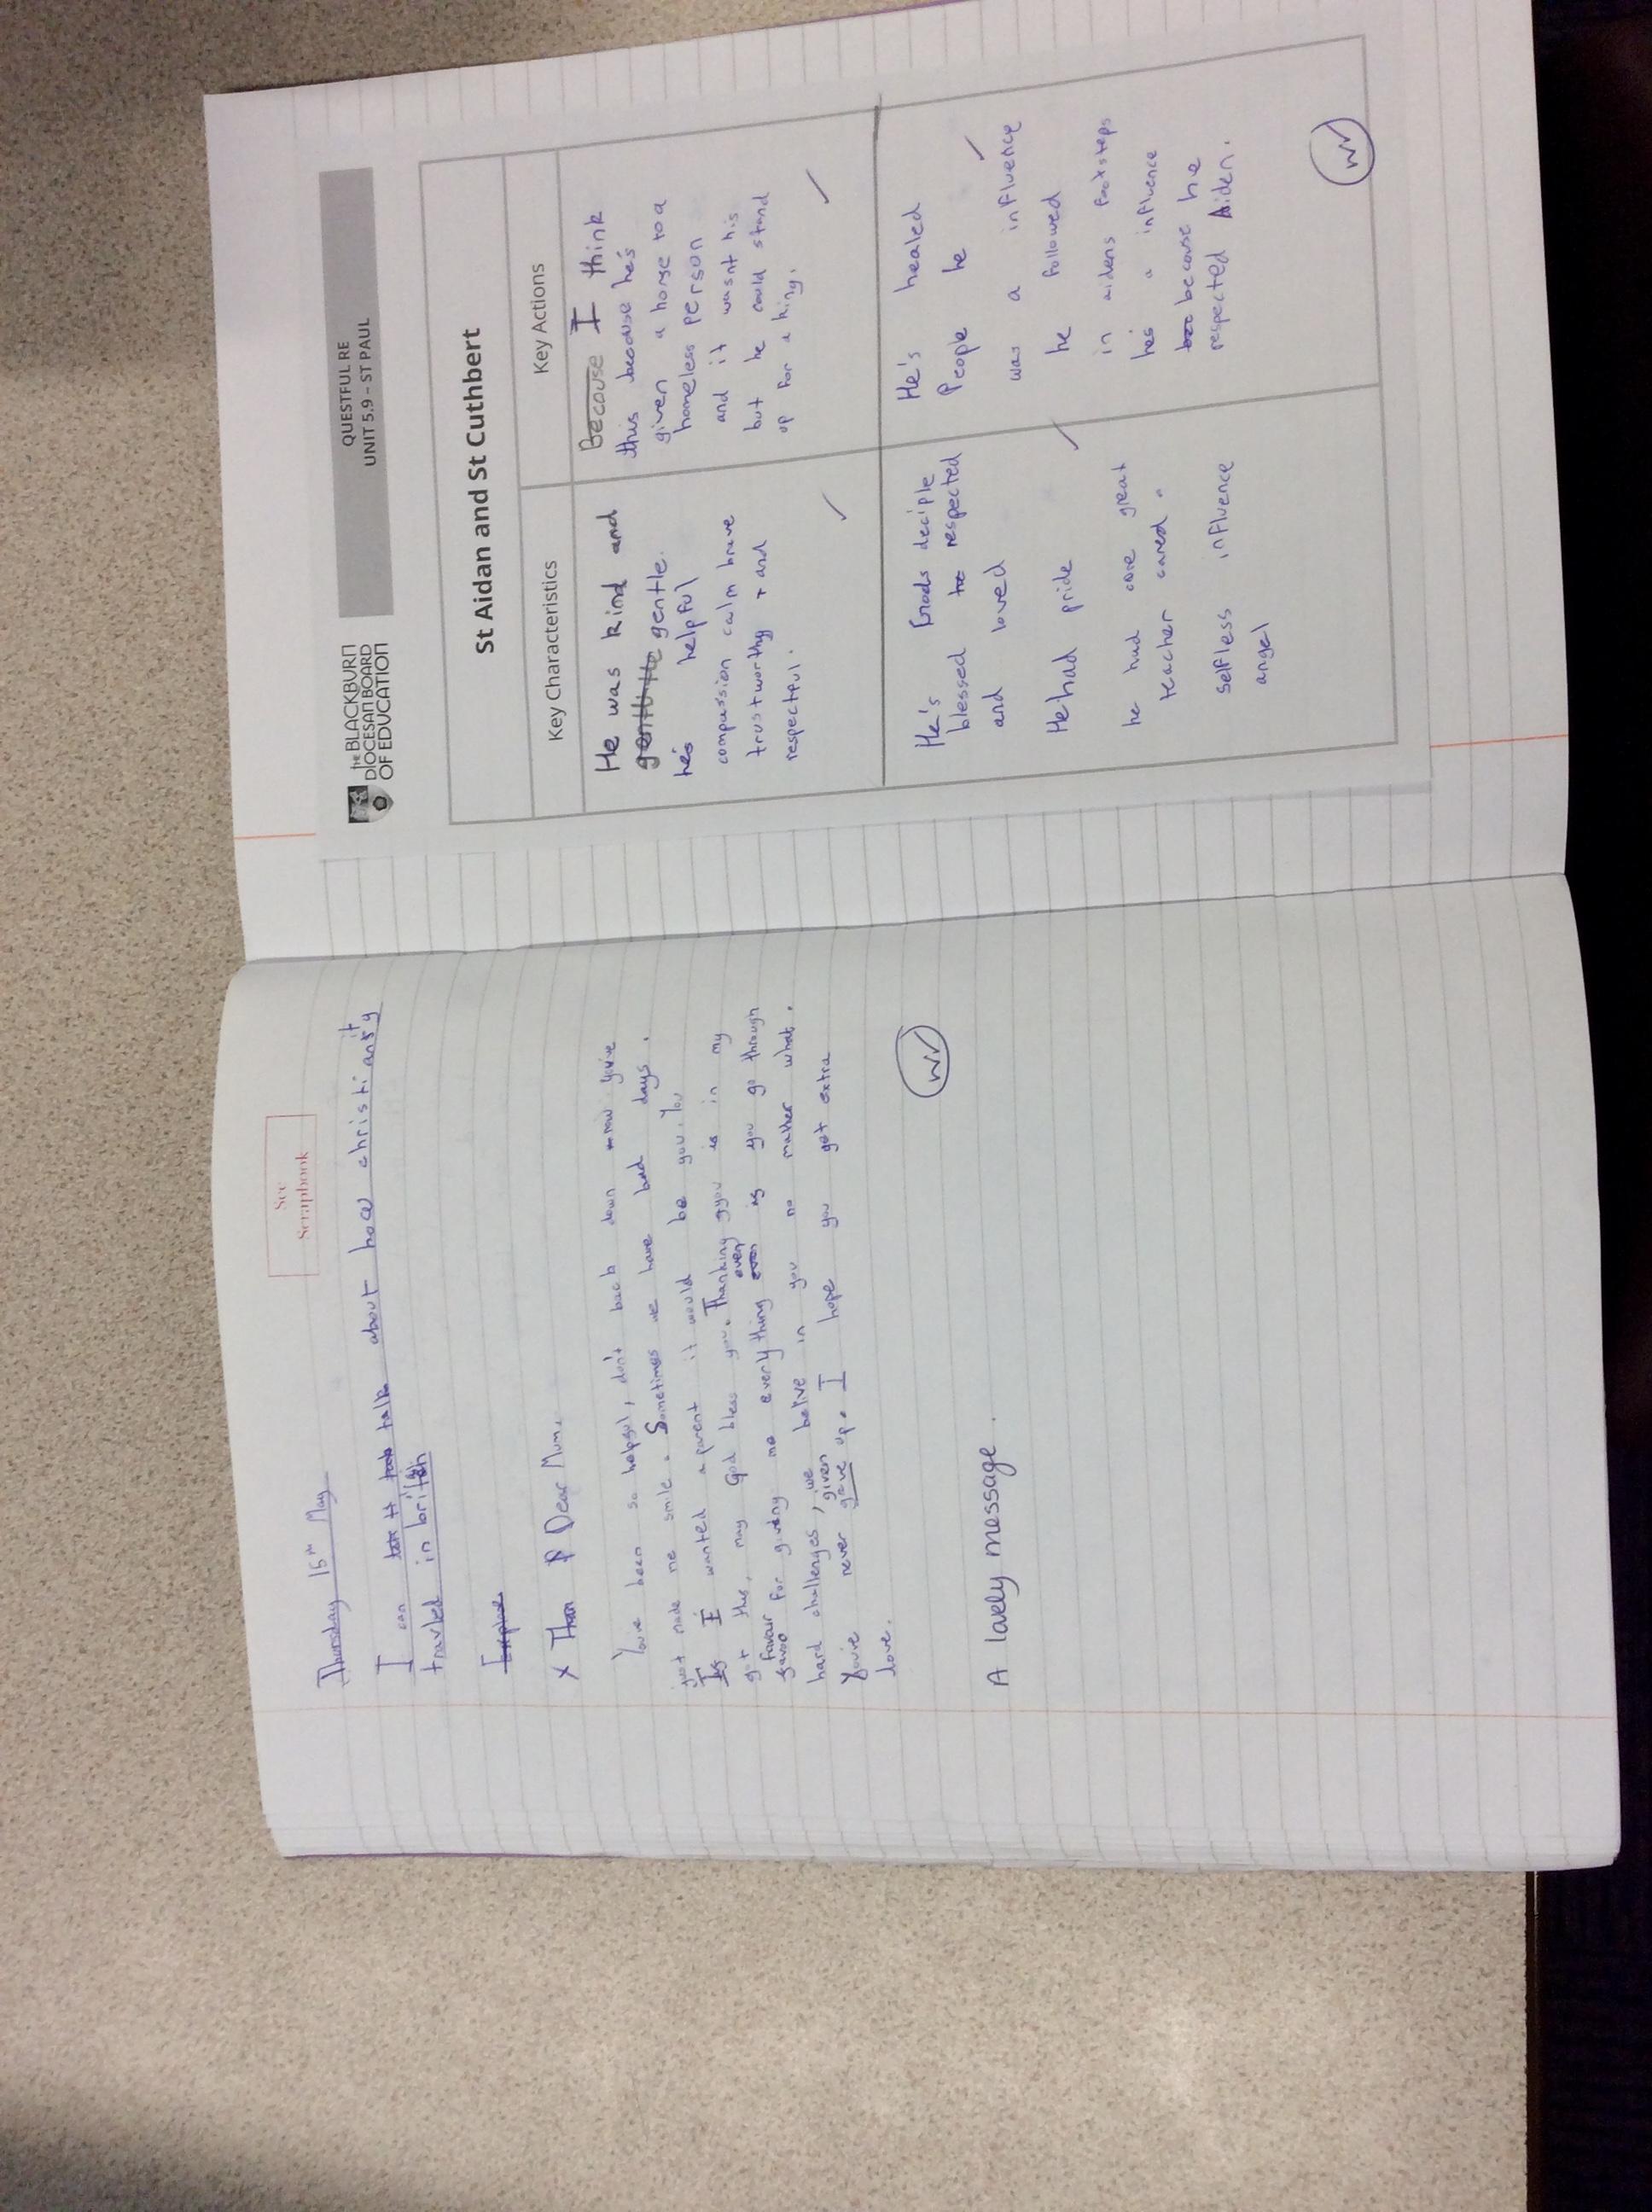 See
Scrapbook
Thursday 15th May
I can talk about how christianity
travled in british
Explore
x Than Dear Mum,
You've been so helpful, don't back down now you've
just made me smile. Sometimes we have bad days.
If I wanted a parent it would be you. You
got this, may God bless you. Thanking you is in my
favour for giving me everything even is you go through
hard challenges, we belive in you no mather what.
You've never given up. I hope you get extra
love.
A lovely message.
THE BLACKBURN
DIOCESAN BOARD
OF EDUCATION
QUESTFUL RE
UNIT 5.9 – ST PAUL
St Aidan and St Cuthbert
Key Characteristics
Key Actions
He was kind and
gentle.
he's helpful
compassion calm brave
trustworthy and
respectful.
Because I think
this because he's
given a horse to a
homeless person
and it wasnt his
but he could stand
up for a king.
He's Gods deciple
blessed respected
and loved
He had pride
he had care great
teacher cared.
selfless influence
angel
He's healed
People he
was a influence
he followed
in aidens footsteps
he's a influence
because he
respected Aiden.